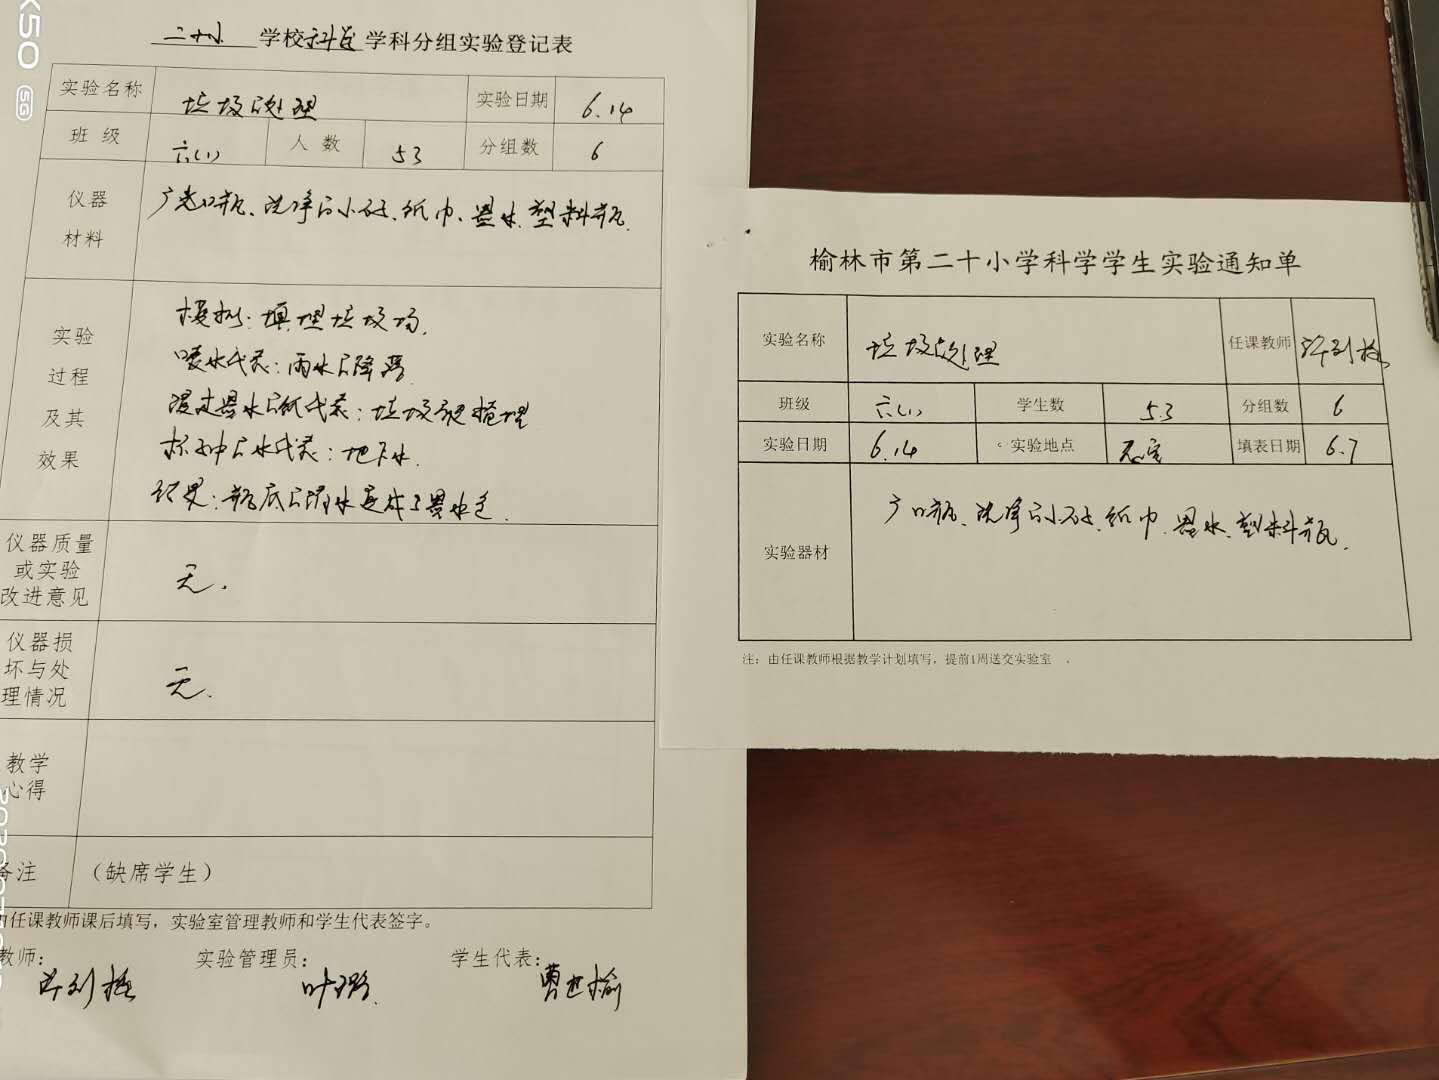 K50 5G
二十小 学校 科学 学科分组实验登记表
实验名称 垃圾的处理 实验日期 6.14
班级 六(1) 人数 53 分组数 6
仪器材料 广口瓶、洗净的小石子、纸巾、墨水、塑料瓶.
实验过程及其效果
模拟:填埋垃圾场.
喷水代表:雨水的降落
浸过墨水的纸代表:垃圾被掩埋
杯子中的水代表:地下水.
结果:瓶底的清水变成了墨水色.
仪器质量或实验改进意见 无.
仪器损坏与处理情况 无.
教学心得
备注 (缺席学生)
由任课教师课后填写,实验室管理教师和学生代表签字。
教师: 实验管理员: 学生代表:
叶璐. 曹世榆
榆林市第二十小学科学学生实验通知单
实验名称 垃圾的处理 任课教师
班级 六(1) 学生数 53 分组数 6
实验日期 6.14 实验地点 填表日期 6.7
实验器材 广口瓶、洗净的小石子、纸巾、墨水、塑料瓶.
注:由任课教师根据教学计划填写,提前1周送交实验室.